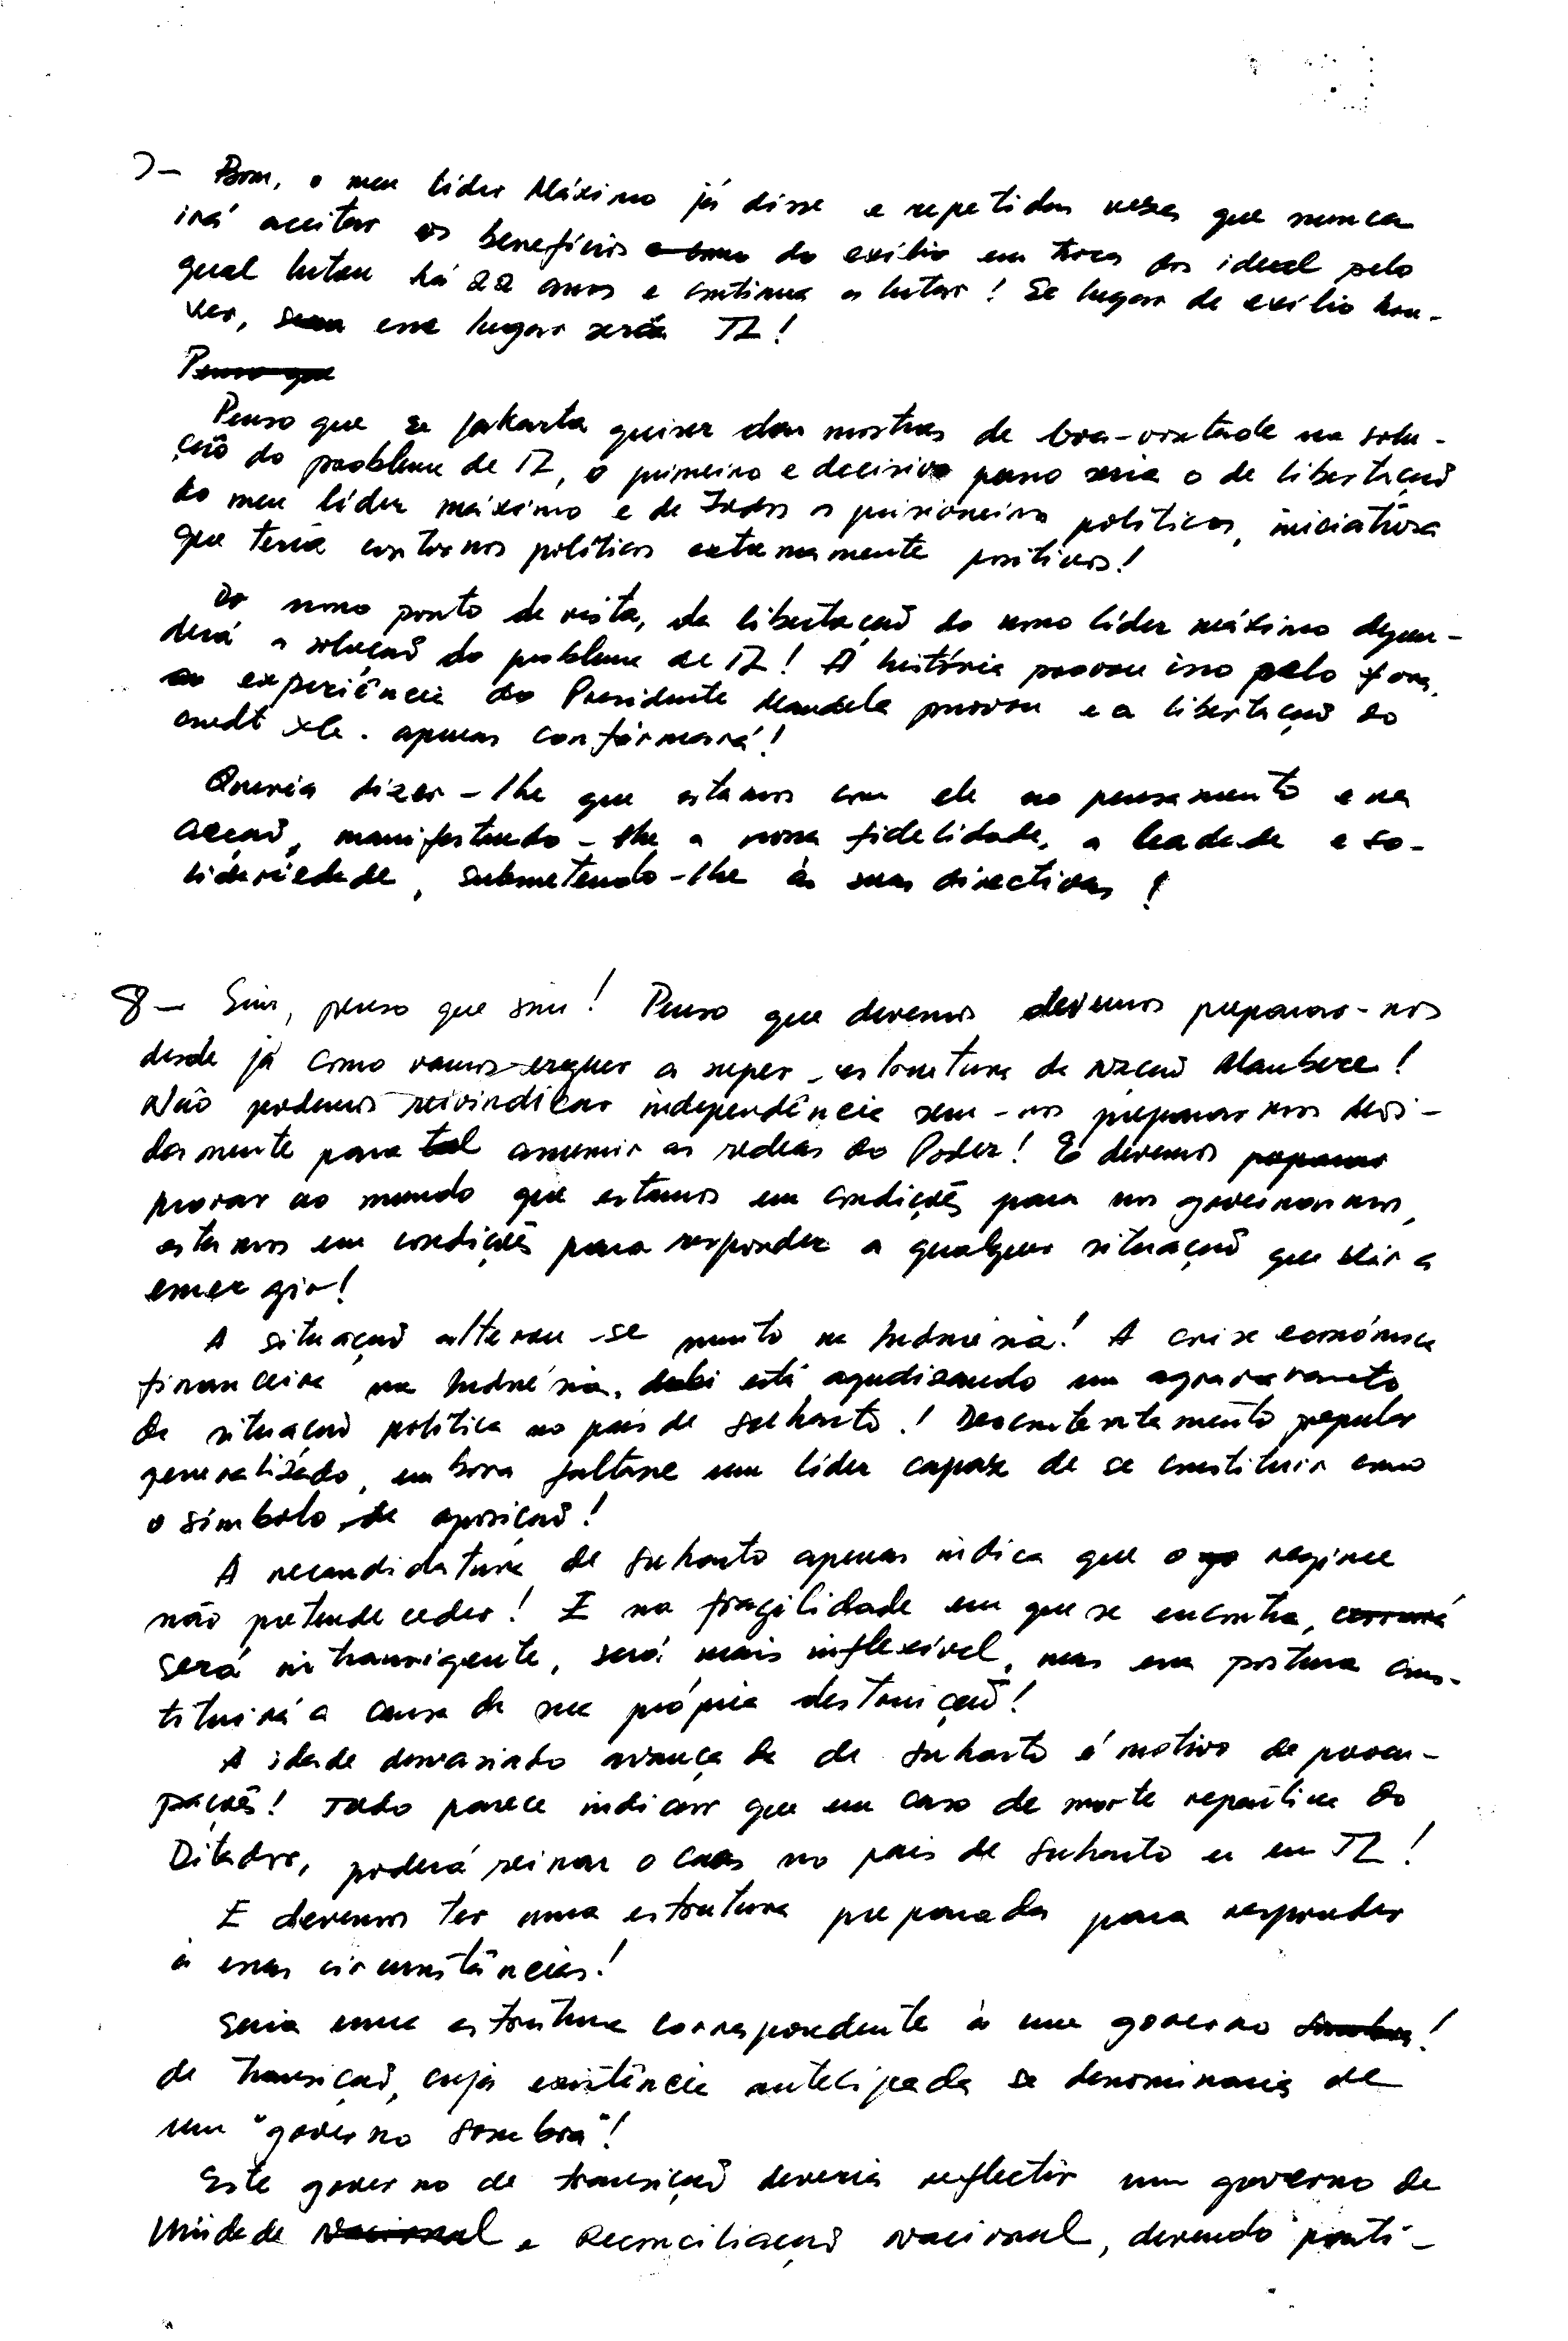 7- Bom, o meu líder Máximo já disse e repetidas vezes que nunca
irá aceitar os benefícios do exílio em troca dos ideal pelo
qual lutou há 22 anos e continua a lutar! Se lugar de exílio hou-
ver, esse lugar será TL!
Penso que
Penso que se Jakarta quiser dar mostras de boa-vontade na solu-
ção do problema de TL, o primeiro e decisivo passo seria o de libertação
do meu líder máximo e de todos os prisioneiros políticos, iniciativa
que teria contornos políticos extremamente positivos!
Do nosso ponto de vista, da libertação do nosso líder máximo depen-
derá a solução do problema de TL! A história provou isso pelo
experiência do Presidente Mandela provou e a libertação do
apenas confirmará!
Queria dizer-lhe que estamos com ele no pensamento e na
acção, manifestando-lhe a nossa fidelidade, a lealdade e so-
lidariedade, submetendo-lhe às suas directivas!
8- Sim, penso que sim! Penso que devemos devemos preparar-nos
desde já como vamos erguer a super-estrutura da Nação Maubere!
Não podemos reivindicar independência sem-nos preparar-nos devi-
damente para tal assumir as rédeas do Poder! E devemos preparar
provar ao mundo que estamos em condições para nos governarmos,
estamos em condições para responder a qualquer situação que vir a
emergir!
A situação alterou-se muito na Indonésia! A crise económica
financeira na Indonésia, está agudizando um agravamento
da situação política no país de Suharto! Descontentamento popular
generalizado, embora faltasse um líder capaz de se constituir como
o símbolo de oposição!
A recandidatura de Suharto apenas indica que o regime
não pretende ceder! E na fragilidade em que se encontra,
será intransigente, será mais inflexível, mas essa postura cons-
tituirá a causa da sua própria destruição!
A idade demasiado avançada de Suharto é motivo de preocu-
pações! Tudo parece indicar que em caso de morte repentina do
Ditador, poderá reinar o caos no país de Suharto e em TL!
E devemos ter uma estrutura preparada para responder
à essas circunstâncias!
Seria uma estrutura correspondente à um governo sombra!
de transição, cuja existência antecipada se denominaria de
um "governo sombra"!
Este governo de transição deveria reflectir um governo de
Unidade Nacional e Reconciliação Nacional, devendo parti-